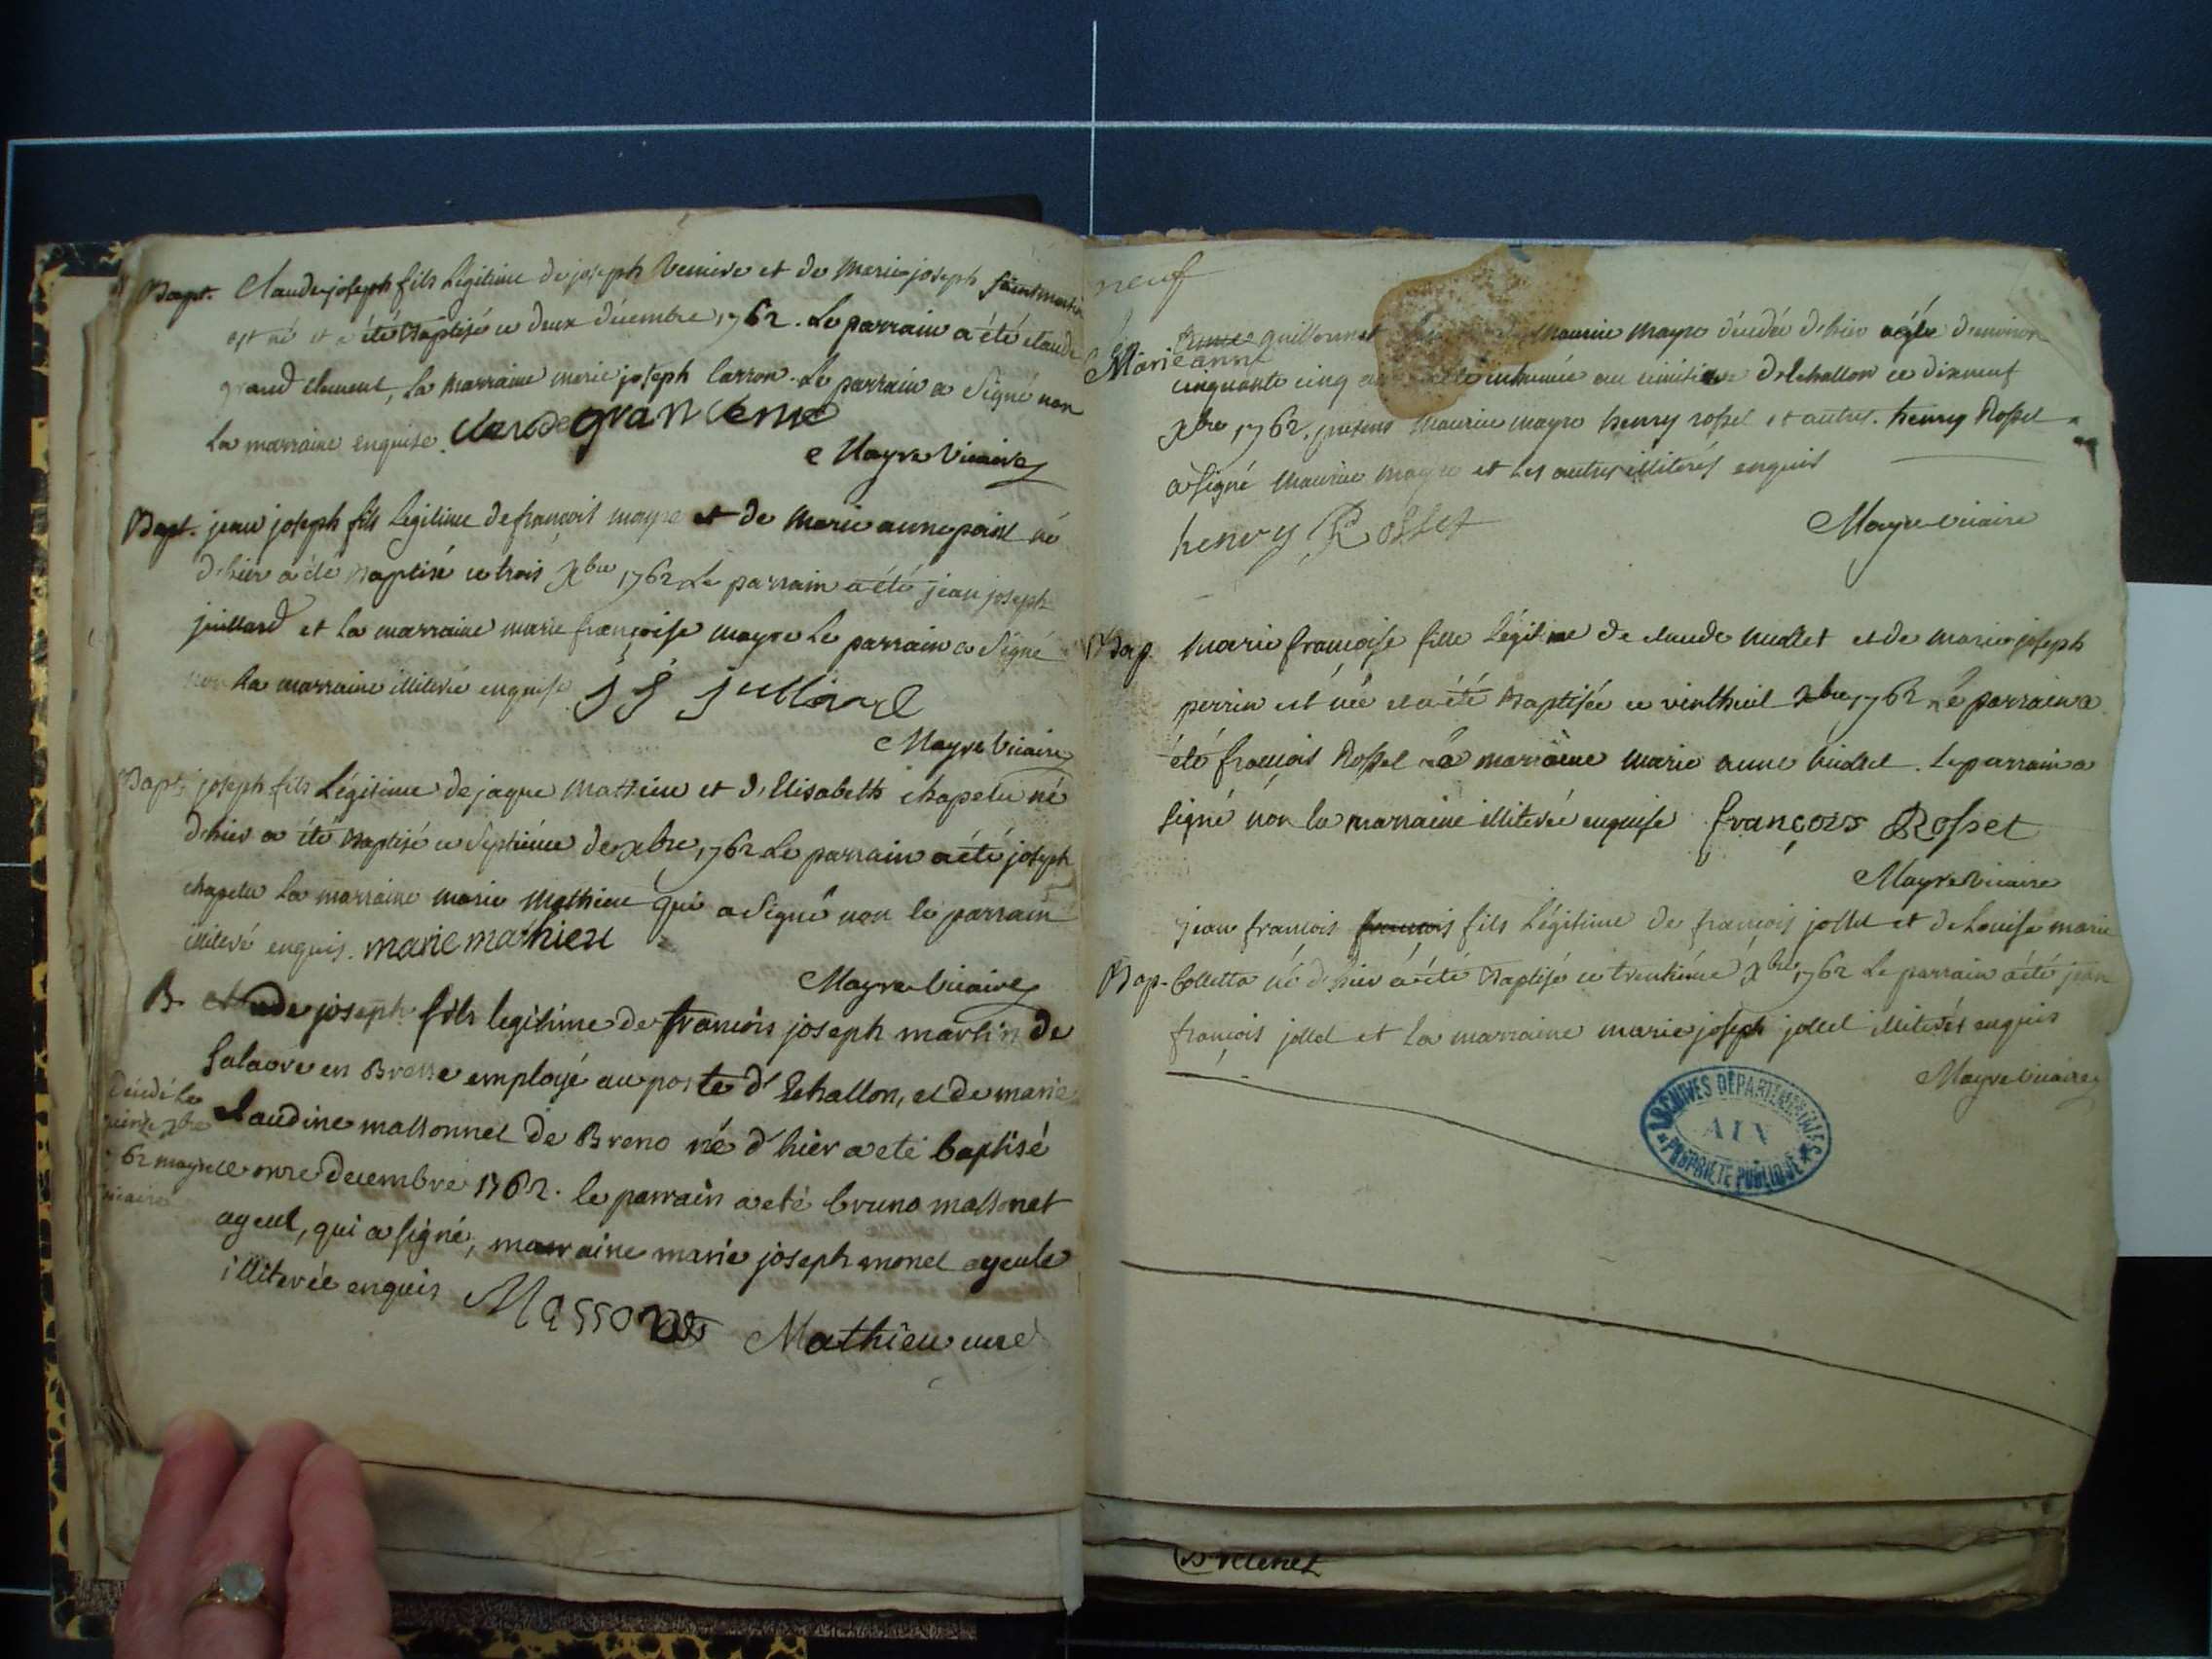 Bapt. Claude joseph fils Légitime de joseph Vernire et de Marie joseph saint martin
est né et a été Baptisé ce deux décembre 1762. Le parrain a été claude
grand clement, La Marraine marie joseph carron. Le parrain a Signé non
La marraine enquise. claude gran cleme
Mayre Vicaire
Bapt. jean joseph fils Légitime de françois mayre et de Marie anne point né
d'hier a été Baptisé ce trois Xbre 1762 Le parrain a été jean joseph
juillard et La marraine marie françoise mayre Le parrain a Signé
non La marraine illiterée enquise J J julliard
Mayre Vicaire
Bapt. joseph fils Légitime de jaque Mathieu et d'Elisabeth chapelu né
d'hier a été Baptisé ce Septième de xbre 1762 Le parrain a été joseph
chapelu La marraine marie Mathieu qui a Signé non le parrain
illiteré enquis. marie mathieu
Mayre Vicaire
B. Claude joseph fils legitime de francois joseph martin de
Salavre en Bresse employé au poste d'Echallon, et de marie
claudine massonnet de Breno né d'hier a eté baptisé
ce onze decembre 1762. le parrain a eté bruno massonet
ayeul, qui a signé, marraine marie joseph monet ayeule
illiterée enquis Massonet Mathieu curé
Décédé Le
quinze xbre
62 mayre
vicaire
neuf
Marie anne
guillermet de Maurice Mayre décédée d'hier agée d'environ
cinquante cinq a été inhumée au cimitiere d'Echallon ce dixneuf
Xbre 1762. presens Maurice mayre henry rosset et autres. henry Rosset
a signé Maurice mayre et Les autres illiterés enquis
henry Rosset Mayre vicaire
Bap. Marie françoise fille Légitime de claude nuellet et de marie joseph
perrin est née et a été Baptisée ce vinthuit Xbre 1762 Le parrain a
été françois Rosset La marraine marie anne . Le parrain a
signé non la marraine illiterée enquise françois Rosset
Mayre Vicaire
jean francois francois fils Légitime de françois jollet et de Louise marie
Bap. Colletta né d'hier a été Baptisé ce trentième Xbre 1762 Le parrain a été jean
françois jollet et La marraine marie joseph jollet illiterés enquis
Mayre Vicaire
ARCHIVES DÉPARTEMENTALES
AIN
PROPRIÉTÉ PUBLIQUE